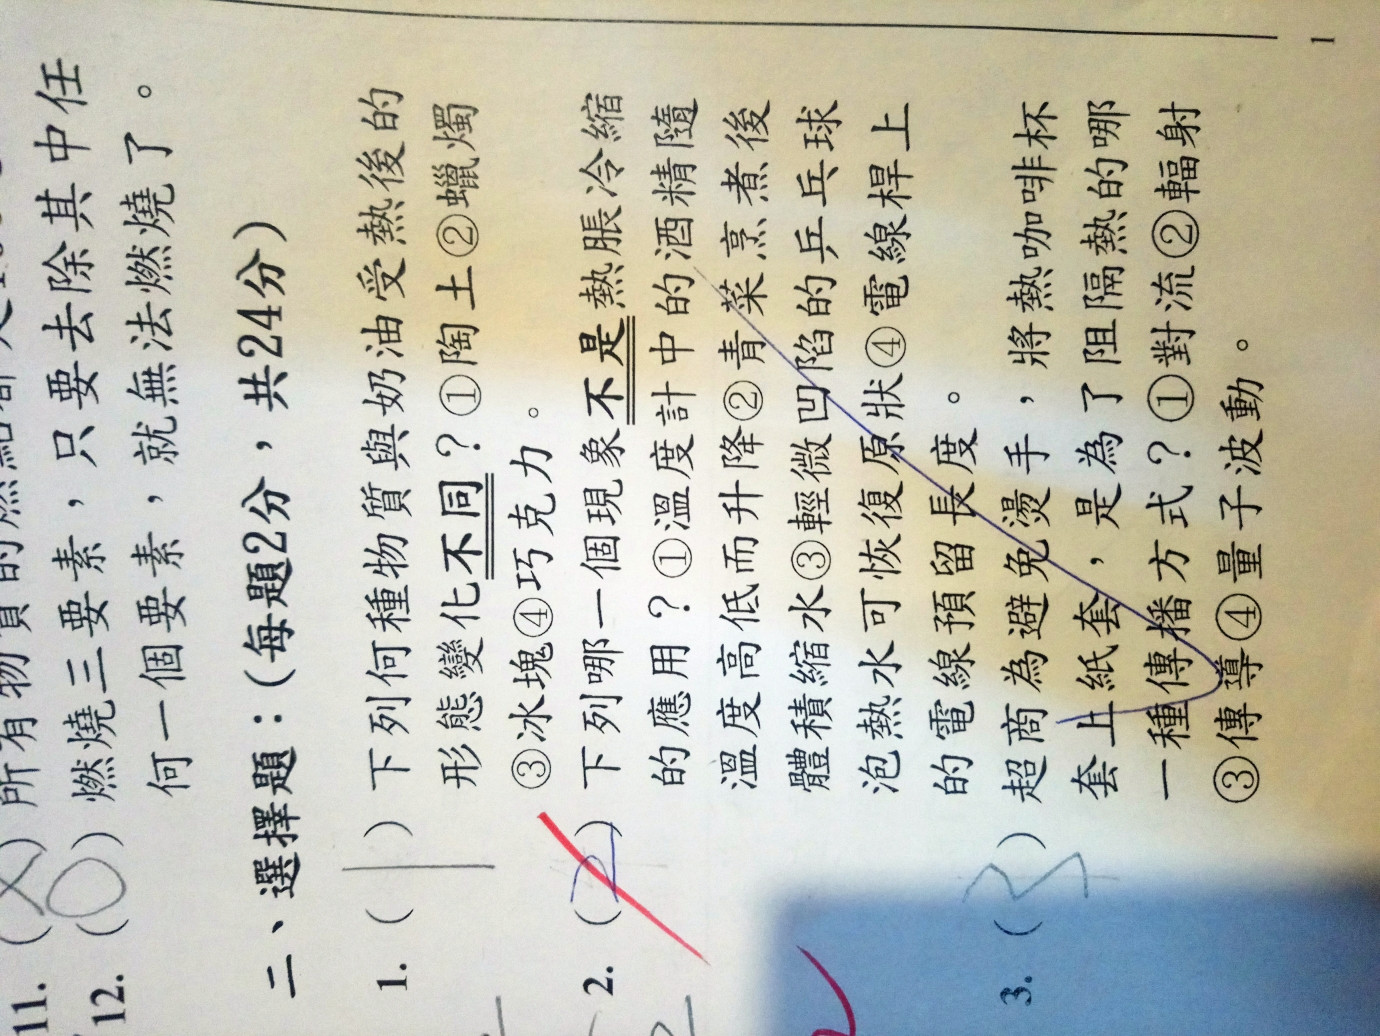 11. (X) 所有物質的燃點都
12. (○) 燃燒三要素，只要去除其中任
何一個要素，就無法燃燒了。
二、選擇題：(每題2分，共24分)
1. (1) 下列何種物質與奶油受熱後的
形態變化不同？①陶土②蠟燭
③冰塊④巧克力。
2. (2) 下列哪一個現象不是熱脹冷縮
的應用？①溫度計中的酒精隨
溫度高低而升降②青菜烹煮後
體積縮水③輕微凹陷的乒乓球
泡熱水可恢復原狀④電線桿上
的電線預留長度。
3. (3) 超商為避免燙手，將熱咖啡杯
套上紙套，是為了阻隔熱的哪
一種傳播方式？①對流②輻射
③傳導④量子波動。
1